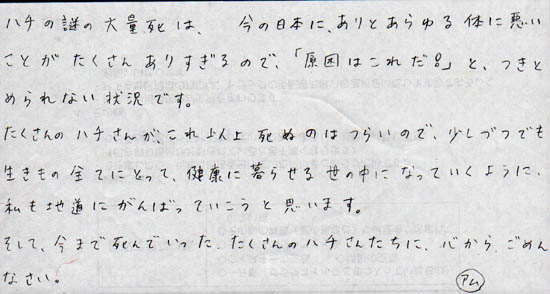 ハチの謎の大量死は、 今の日本に、ありとあらゆる体に悪い
ことがたくさんありすぎるので、「原因はこれだ!!」と、つきと
められない状況です。
たくさんのハチさんが、これ以上死ぬのはつらいので、少しづつでも
生きもの全てにとって、健康に暮らせる世の中になっていくように、
私も地道にがんばっていこうと思います。
そして、今まで死んでいった、たくさんのハチさんたちに、心から、ごめん
なさい。
アム